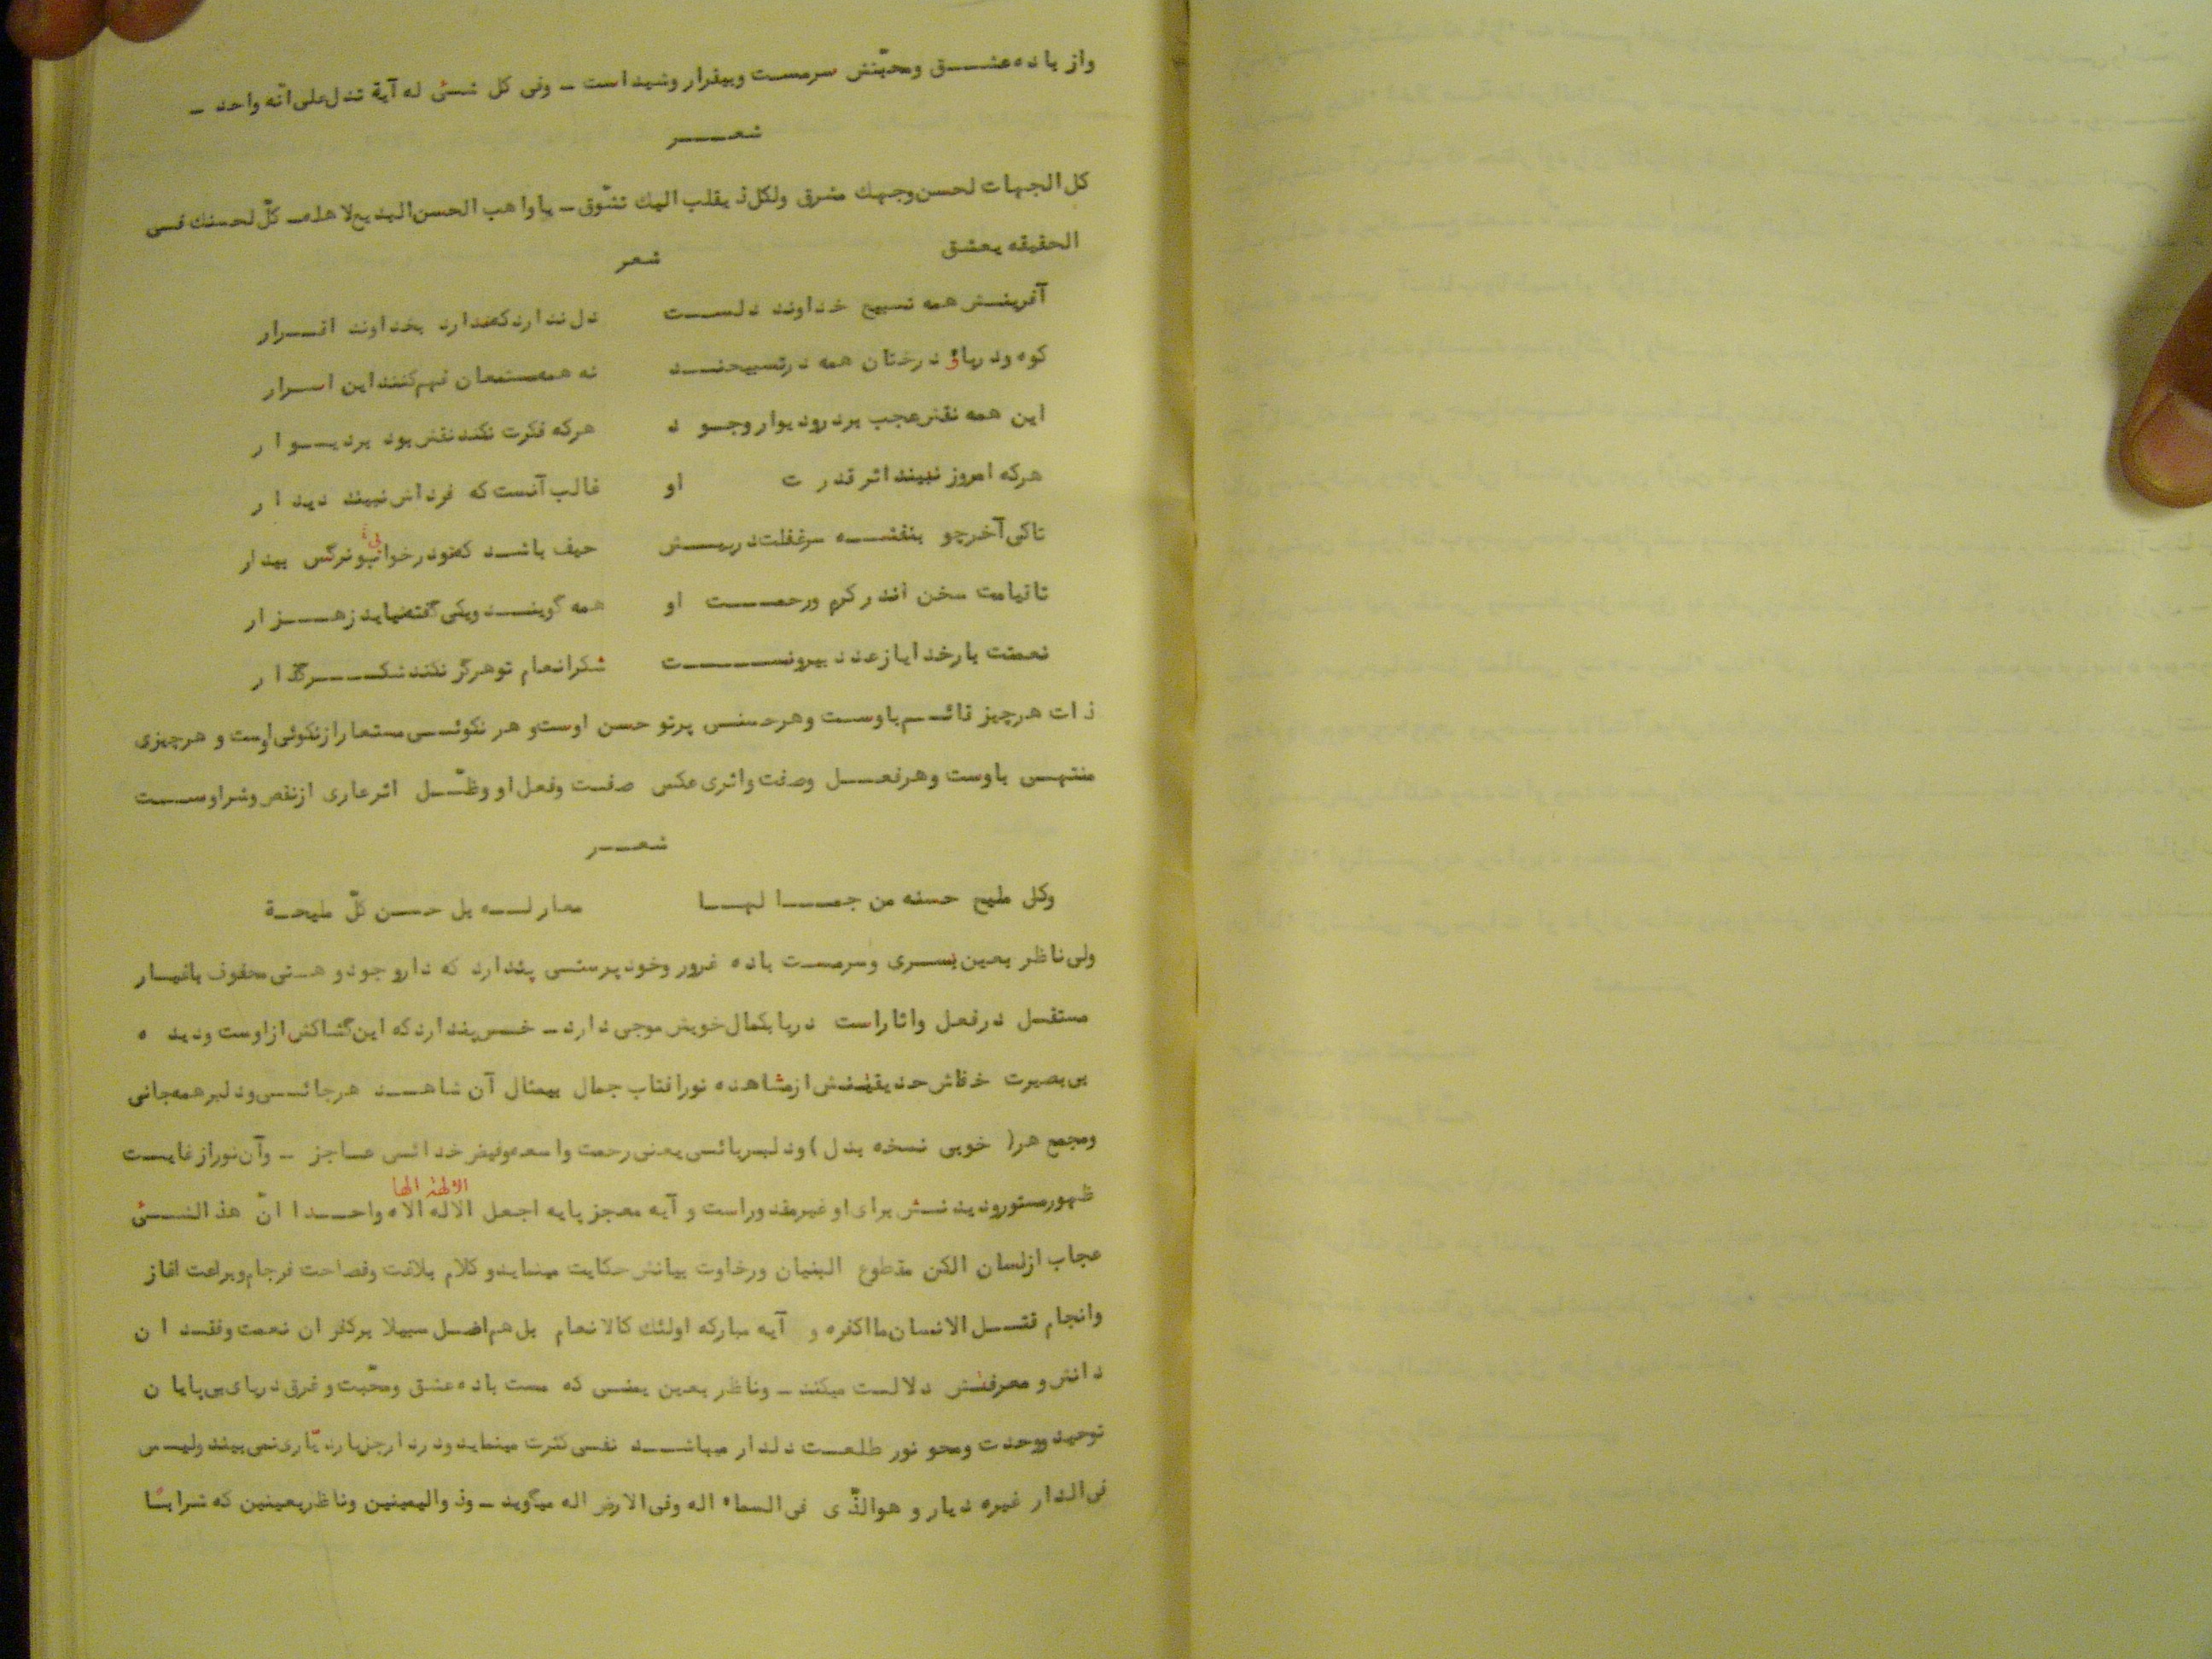 واز باده عشق ومحبّتش سرمست وبیقرار وشیداست ـ وفی کل شئی له آیة تدل علی انّه واحد ـ
شعر
کل الجهات لحسن وجهك مشرق ولکل ذ یقلب الیك تشّوق ـ یا واهب الحسن البدیع لاهله ـ کلّ لحسنك فی
الحقیقه یعشق
شعر
آفرینش همه تسبیح خداوند دلست دل ندارد که ندارد بخداوند اقرار
کوه ودریا و درختان همه درتسبیحند نه همه مستمعان فهم کننداین اسرار
این همه نقش عجب بردرودیوار وجود هرکه فکرت نکند نقش بود بردیوار
هرکه امروز نبیند اثر قدرت او غالب آنست که فرداش نبیند دیدار
تاکی آخرچو بنفشه سرغفلت درپیش حیف باشد که تودرخوابی ونرگس بیدار
تاقیامت سخن اندر کرم ورحمت او همه گویند ویکی گفته نیاید زهزار
نعمتت بارخدایا زعدد بیرونست شکرانعام توهرگز نکند شکرگذار
ذات هرچیز قائم باوست وهرحسنی پرتو حسن اوست و هر نکوئی مستعار ازنکوئی اوست و هرچیزی
منتهی باوست وهرفعل وصفت واثری عکس صفت وفعل او وظّل اثرعاری ازنقص وشراوست
شعر
وکل ملیح حسنه من جمالها معار له بل حسن کلّ ملیحة
ولی ناظر بعین یسری وسرمست باده غرور وخودپرستی پندارد که داروجود و هستی محفوف باغیار
مستقل درفعل واثاراست دریا بکمال خویش موجی دارد ـ خس پندارد که این کشاکش ازاوست ودیده
بی بصیرت خفاش حدیقتش ازمشاهده نورافتاب جمال بیمثال آن شاهد هرجائی ودلبرهمه جانی
ومجمع هر( خوبی نسخه بدل )ودلبربائی یعنی رحمت واسعه وفیض خدائی عاجز ـ وآن نوراز غایت
الآلهة الها
ظهورمستورودیدنش برای او غیرمقدوراست و آیه معجز پایه اجعل الاله الاه واحدا انّ هذ الشئی
عجاب ازلسان الکن مقطوع البنیان ورخاوت بیانش حکایت مینماید و کلام بلاغت وفصاحت فرجام وبراعت اغاز
وانجام قتل الانسان ما اکفره و آیه مبارکه اولئك کالانعام بل هم اضل سبیلا برکفر ان نعمت وفقدان
دانش و معرفتش دلالت میکند ـ وناظر بعین یمنی که مست باده عشق ومحّبت و غرق دریای بی پایان
توحید ووحدت ومحو نور طلعت دلدار میباشد نفسی کثرت مینماید ودردار جزیار دیّاری نمی بیند ولیس
فی الدار غیره دیار و هوالذّی فی السماء اله وفی الارض اله میگوید ـ وذوالیمینین وناظربعینین که شرابًا